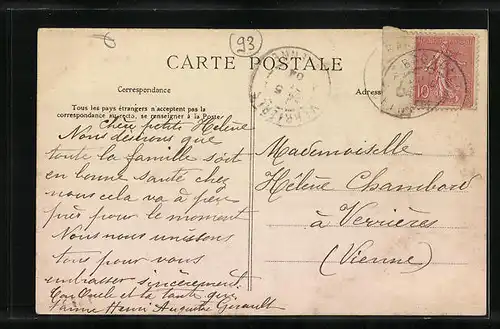 93
CARTE POSTALE
Correspondance
Adresse
Tous les pays étrangers n'acceptent pas la
correspondance au recto, se renseigner à la Poste
Chère petite Hélène
Nous desirons que
toute la famille soit
en bonne sante chez
nous cela va à peu
près pour le moment
Nous nous unissons
tous pour vous
embrasser sincèrement
Ton Oncle et ta tante qui
t'aime Henri Auguste Girault
Mademoiselle
Hélène Chambord
à Verrières
(Vienne)
10